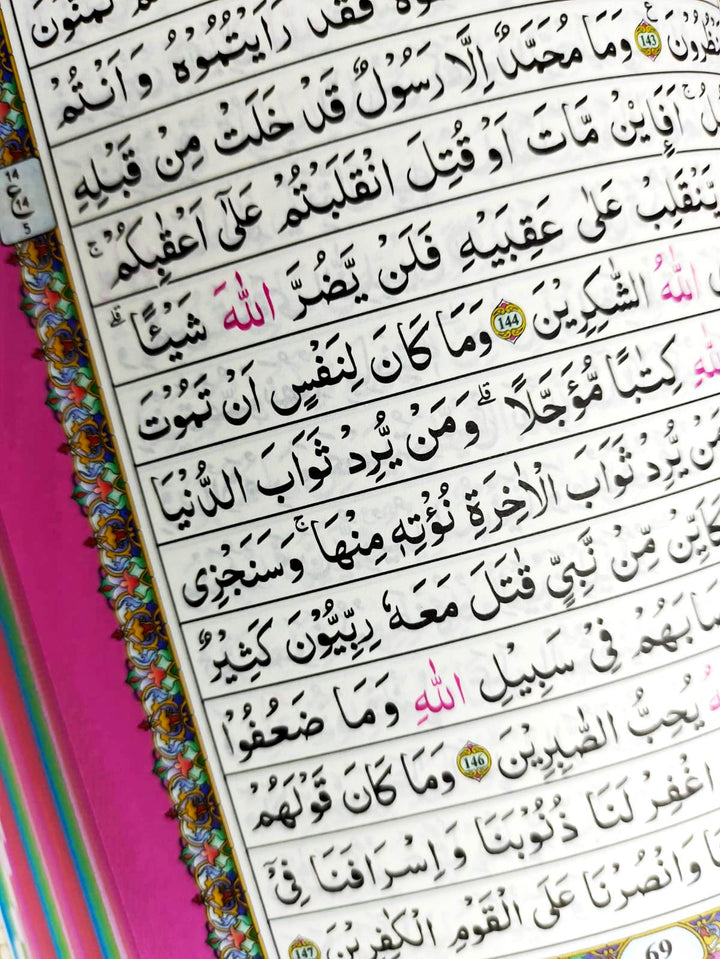 فَقَدْ رَاَيْتُمُوْهُ وَاَنْتُمْ
تَنْظُرُوْنَ 143 وَمَا مُحَمَّدٌ اِلَّا رَسُوْلٌ قَدْ خَلَتْ مِنْ قَبْلِهِ
اَفَاۡئِنْ مَّاتَ اَوْ قُتِلَ انْقَلَبْتُمْ عَلٰٓى اَعْقَابِكُمْ ۚ
يَّنْقَلِبْ عَلٰى عَقِبَيْهِ فَلَنْ يَّضُرَّ اللّٰهَ شَيْـًٔا ؕ
اللّٰهُ الشّٰكِرِيْنَ 144 وَمَا كَانَ لِنَفْسٍ اَنْ تَمُوْتَ
كِتٰبًا مُّؤَجَّلًا ؕ وَمَنْ يُّرِدْ ثَوَابَ الدُّنْيَا
يُّرِدْ ثَوَابَ الْاٰخِرَةِ نُؤْتِهٖ مِنْهَا ۚ وَسَنَجْزِى
مِّنْ نَّبِيٍّ قٰتَلَ مَعَهٗ رِبِّيُّوْنَ كَثِيْرٌ ۚ
فِيْ سَبِيْلِ اللّٰهِ وَمَا ضَعُفُوْا
يُحِبُّ الصّٰبِرِيْنَ 146 وَمَا كَانَ قَوْلَهُمْ
اغْفِرْ لَنَا ذُنُوْبَنَا وَاِسْرَافَنَا فِيْٓ
وَانْصُرْنَا عَلَى الْقَوْمِ الْكٰفِرِيْنَ 147
69
14
ع
14
5